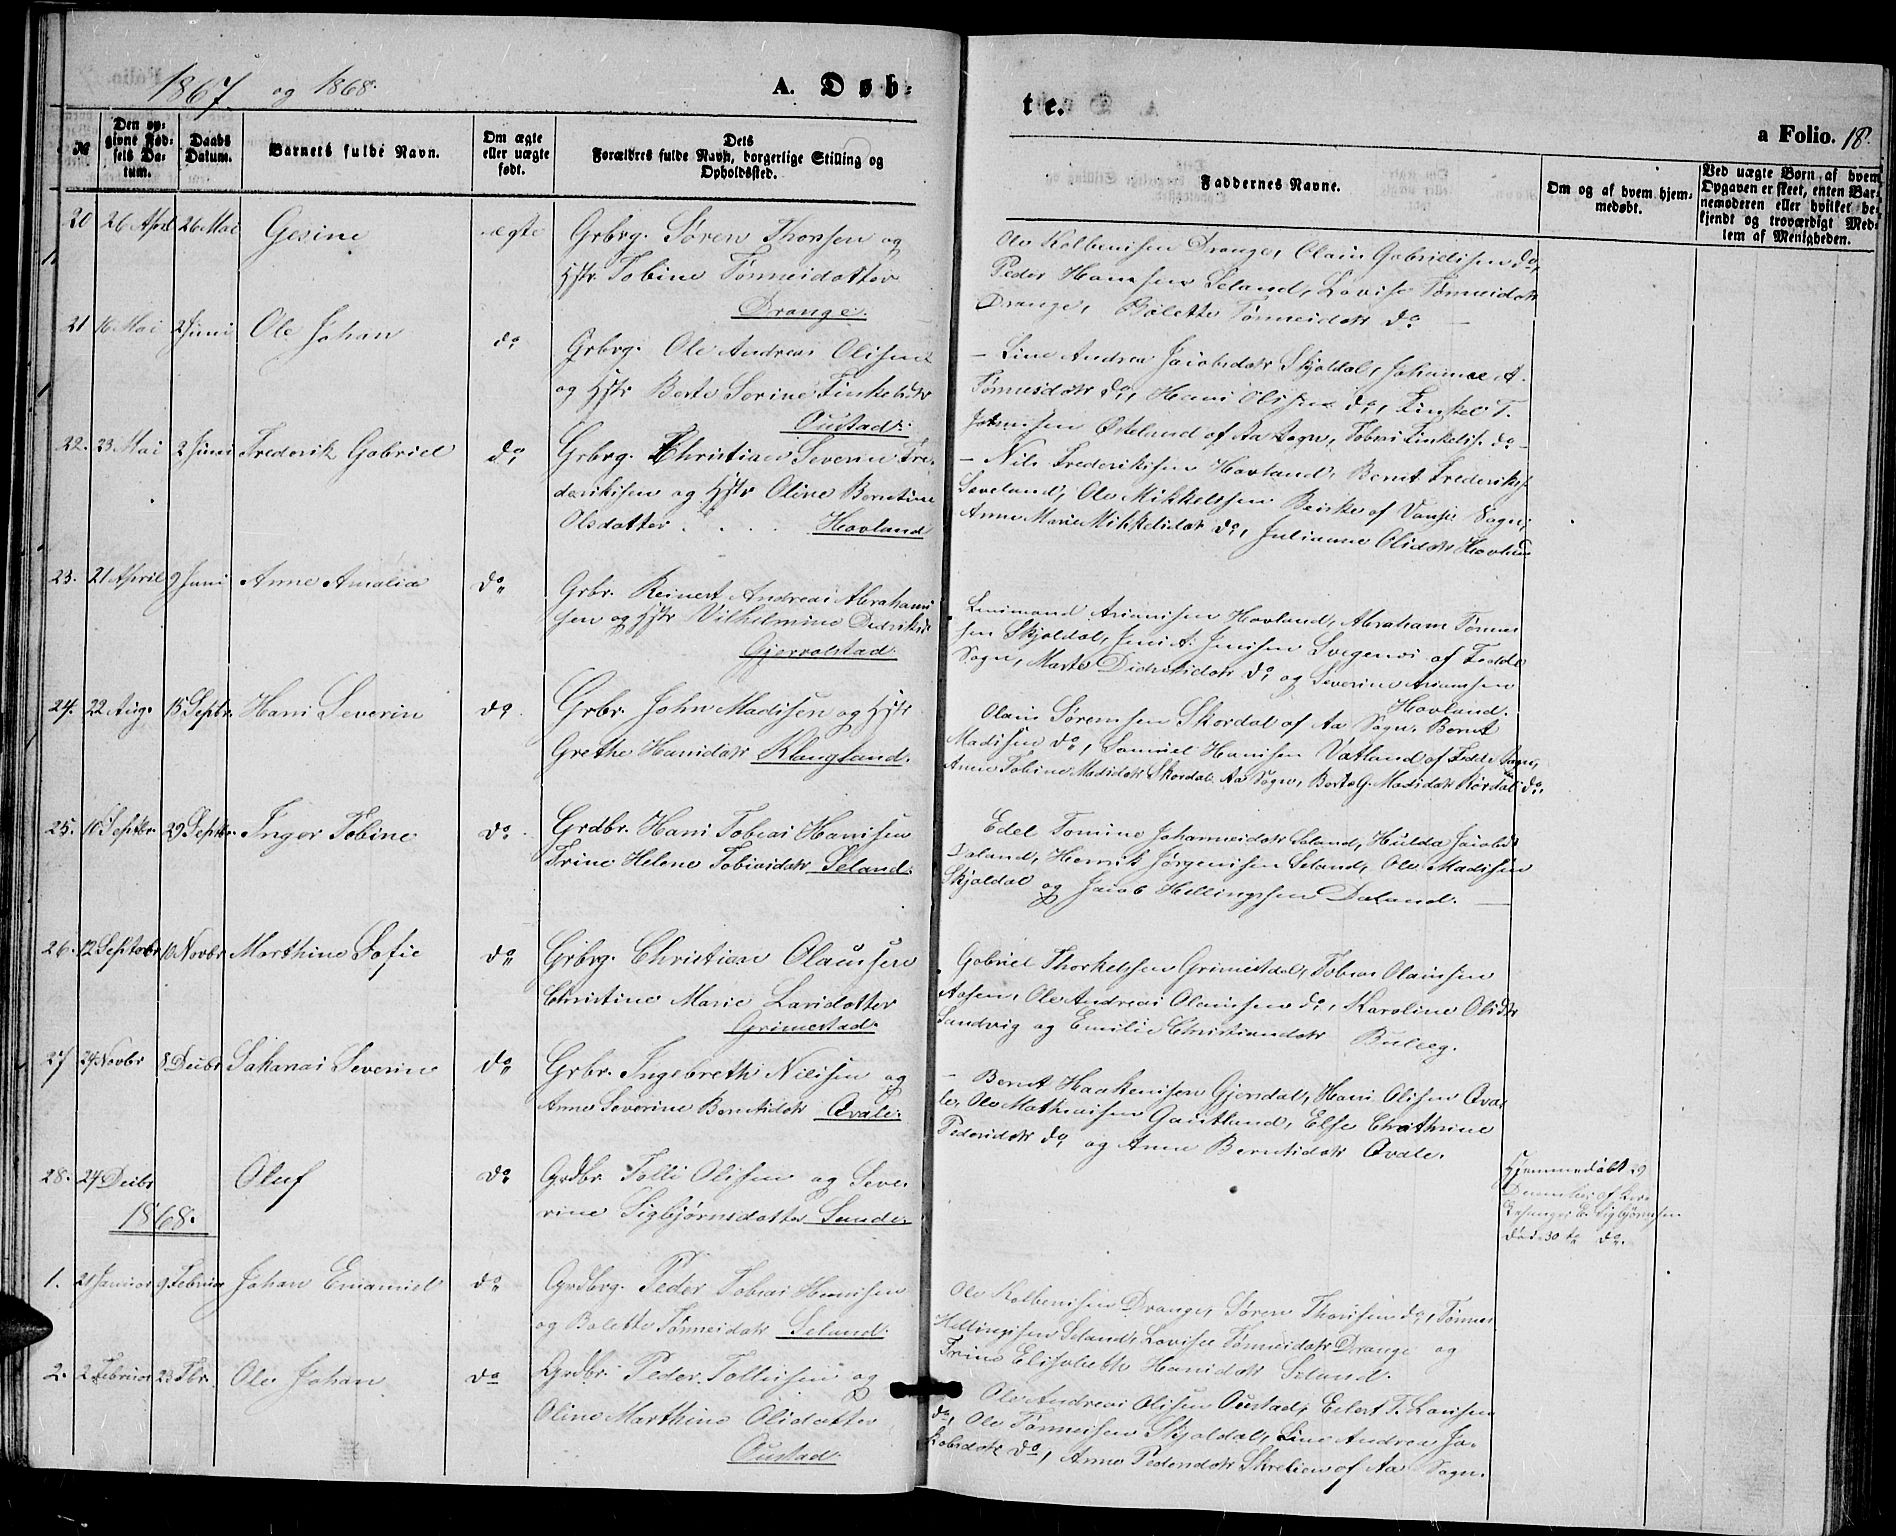 1867 og 1868.
A. Døb-
te.
a Folio. 18.
№
Den op-
givne Fød-
sels Da-
tum.
Daabs
Datum.
Barnets fulde Navn.
Om ægte
eller uægte
født.
Dets
Forældres fulde Navn, borgerlige Stilling og
Opholdssted.
Faddernes Navne.
Om og af hvem hjem-
medøbt.
Ved uægte Børn, af hvem
Opgaven er skeet, enten Bar-
nemoderen eller hvilket be-
kjendt og troværdigt Med-
lem af Menigheden.
20 26 April 26 Mai Gesine ægte Grbrg. Søren Thorsen og
Hstr Tobine Tønnesdatter
Drange.
Ole Kolbensen Drange, Olaus Gabrielsen do,
Peder Hansen Seland, Lovise Tønnesdatr
Drange, Bolette Tønnesdatr do
21 16 Mai 2 Juni Ole Johan do Grbrg. Ole Andreas Olisen
og Hstr Berte Serine Tinkelsdtr
Oustad.
Line Andrea Jacobsdatr Skjoldal, Johanne A.
Tønnesdatr do, Hans Olsen do, Tinkel T.
Østeland af Aa Sogn, Tobias Tinkels. do
22. 23 Mai 2 Juni Frederik Gabriel do Grbrg. Christian Severin Fre-
deriksen og Hstr Oline Berntine
Olsdatter . . . Hovland
Nils Frederiksen Hovland, Bernt Frederiks.
Ole Mikkelsen af Vanse Sogn,
Anne Marie Mikkelsdatr do, Julianne Olsdatr Hovland
23. 21 April 9 Juni Anne Amalia do Grbr. Reinert Andreas Abraham
sen og Hstr Vilhelmine Didriksd.
Gjervolstad.
Hovland, Abraham Tønnes
sen Skjoldal, Jens A. Jensen af Fedde
Sogn, Marte do og Severine
Hovland.
24. 22 Aug. 15 Septbr. Hans Severin do Grbr. John Madssen og Hstr
Grethe Hansdatr Klungland.
Olaus Sørensen Skordal af Aa Sogn, Bernt
Madssen do, Samuel Hansen Vatland af Fedde Sogn,
Anne Tobine Madsdatr Skordal Aa Sogn, Berte G. Madsdatr do.
25. 10 Septbr. 29 Septbr. Inger Tobine do Grdbr. Hans Tobias Hansen
Trine Helene Tobiasdatr Seland.
Edel Tomine Johannesdatr Seland, Hulda Jacobsd.
Daland, Henrik Jørgensen Seland, Ole Madssen
Skjoldal og Jacob Hellingssen Daland.
26. 12 Septbr 10 Novbr Marthine Sofie do Grbrg. Christian Olaussen
Christine Marie Larsdatter
Grimestad.
Gabriel Thorkelssen Grimestad, Tobias Olaussen
Aasen, Ole Andreas Olaussen do, Karoline Olsdtr
Sandvig og Emilie Christiansdatr Buleg.
27 24 Novbr 8 Decbr Sakarias Severin do Grbr. Ingebreth Nilssen og
Anne Severine Berntsdatr Qvale.
Bernt Haakenssen Gjersdal, Hans Olssen Qva
le, Ole Mathiassen Gautland, Else Cathrine
Pedersdatr do og Anne Berntsdatr Qvale.
28. 24 Decbr Oluf do Grdbr. Tolli Olssen og Seve-
rine Sigbjørnsdatter Sande.
Hjemmedøbt 29
December af
E. Sigbjørnsen
død 30te do.
1868.
1. 21 Januar 9 Februar Johan Emanuel do Grdbrg. Peder Tobias Hansen
og Bolette Tønnesdatr Seland.
Ole Kolbensen Drange, Søren Thorsen do, Tønnes
Hellingssen Seland, Lovise Tønnesdatr Drange og
Trine Elisabeth Hansdatr Seland.
2. 2 Februar 23 Fbr. Ole Johan do Grdbr. Peder Tollissen og
Oline Marthine Olsdatter
Oustad.
Ole Andreas Olssen Oustad, Eilert T. Larssen
do, Ole Tønnessen Skjoldal, Line Andrea Ja-
kobsdatr do, Anne Pedersdatr Skrelien af Aa Sogn.